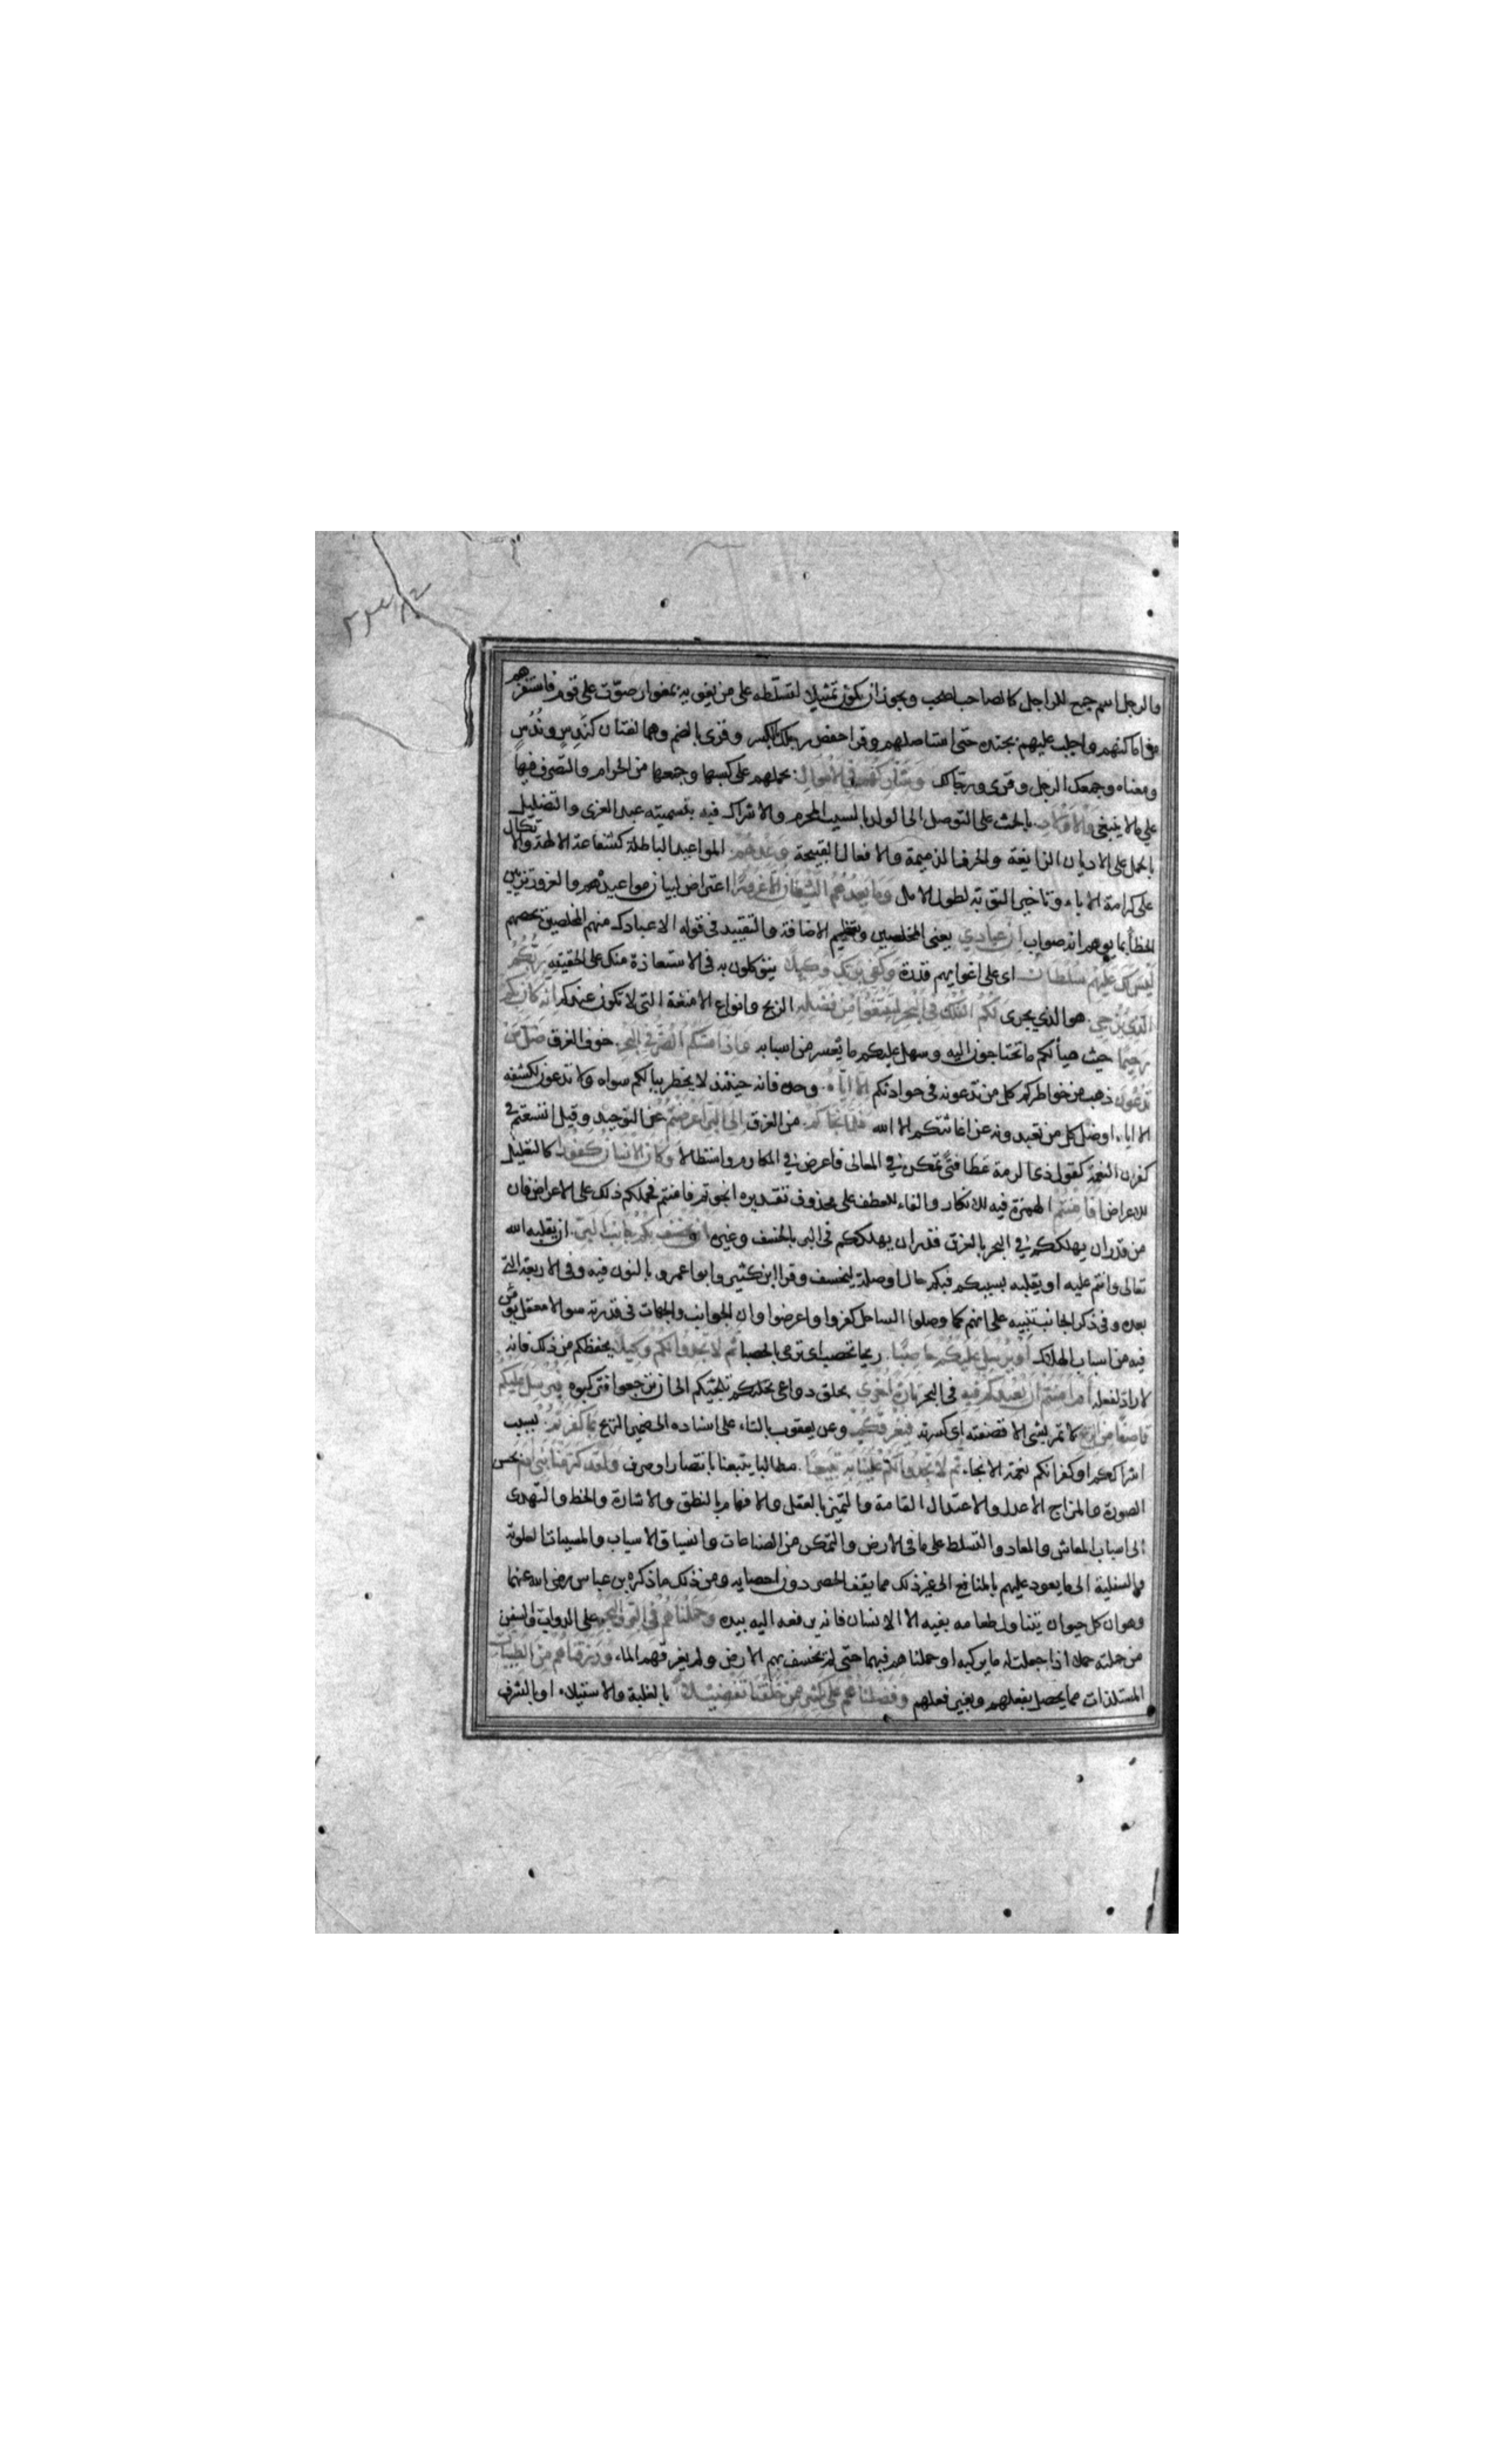 والرجل اسم جمع للراجل كالصاحب لصحب ويجوز ان يكون تمثيلا لتسلطه على من يغويه بمغوار صوّت على قوم فاستفزهم
من اماكنهم واجلب عليهم بجنده حتى استاصلهم وقرا حفص رجلك بالكسر وقرى بالضم وهما لغتان كندس وندس
ومعناه وجمعك الرجل وقرى ورجالك وشاركهم في الاموال بحملهم على كسبها وجمعها من الحرام والتصرف فيها
على ما لا ينبغى والاولاد بالحث على التوصل الى الولد بالسبب المحرم والاشراك فيه بتسميته عبد العزى والتضليل
بالحمل على الاديان الزايغة والحرف الذميمة والافعال القبيحة وعدهم المواعيد الباطلة كشفاعة الالهة والاتكال
على كرامة الاباء وتاخير التوبة لطول الامل وما يعدهم الشيطان الا غرورا اعتراض لبيان مواعيدهم والغرور تزيين
الخطأ بما يوهم انه صواب ان عبادي يعنى المخلصين وتعظيم الاضافة والتقييد فى قوله الا عبادك منهم المخلصين يخصهم
ليس لك عليهم سلطان اى على اغوايهم قدرة وكفى بربك وكيلا يتوكلون به فى الاستعاذة منك على الحقيقه ربكم
الذي يزجي هو الذي يجرى لكم الفلك فى البحر لتبتغوا من فضله الريح وانواع الامتعة التى لا تكون عندكم انه كان بكم
رحيما حيث هيأ لكم ما تحتاجون اليه وسهل عليكم ما يعسر من اسبابه واذا مسكم الضر في البحر خوف الغرق ضل من
تدعون ذهب من خواطركم كل من تدعونه فى حوادثكم الا اياه وحده فانه حينئذ لا يخطر ببالكم سواه ولا تدعون لكشفه
الا اياه اوضل كل من تعبدونه عن اغاثتكم الا الله فلما نجاكم من الغرق الى البر اعرضتم عن التوحيد وقيل اتسعتم فى
كفران النعمة كقول ذى الرمة عطا فتى تمكن في المعالى فاعرض في المكارم واستطالا وكان الانسان كفورا كالتعليل
للاعراض افامنتم الهمزة فيه للانكار والفاء للعطف على محذوف تقديره انجوتم فامنتم فحملكم ذلك على الاعراض فان
من قدر ان يهلككم في البحر بالغرق قدر ان يهلككم فى البر بالخسف وغيره ان يخسف بكم جانب البر ان يقلبه الله
تعالى وانتم عليه او يقلبه بسببكم فبكم حال اوصلة ليخسف وقرا ابن كثير وابو عمرو بالنون فيه وفى الاربعة التى
بعده وفى ذكر الجانب تنبيه على انهم كما وصلوا الساحل كفروا واعرضوا وان الجوانب والجهات فى قدرته سوا لا معقل يؤمن
فيه من اسباب الهلاك او يرسل عليكم حاصبا ريحا تحصب اى ترمى بالحصبا ثم لا تجدوا لكم وكيلا يحفظكم من ذلك فانه
لا راد لفعله ام امنتم ان يعيدكم فيه فى البحر تارة اخرى بخلق دواعى تحلكم تلجئيكم الى ان ترجعوا فتركبوه فيرسل عليكم
قاصفا من الريح لا تمر بشى الا قصفته اى كسرته فيغرقكم وعن يعقوب بالتاء على اسناده الى ضمير الريح بما كفرتم بسبب
اشراككم او كفرانكم نعمة الانجاء ثم لا تجدوا لكم علينا به تبيعا مطالبا يتبعنا بانتصار او صرف ولقد كرمنا بنى ادم بحسن
الصورة والمزاج الاعدل والاعتدال القامة والتميز بالعقل والافهام بالنطق والاشارة والخط والتهدى
الى اسباب المعاش والمعاد والتسلط على ما فى الارض والتمكن من الصناعات وانسياق الاسباب والمسببات العلوية
والسفلية الى ما يعود عليهم بالمنافع الى غير ذلك مما يقف الحصر دون احصايه ومن ذلك ما ذكره بن عباس رضى الله عنهما
وهو ان كل حيوان يتناول طعامه بفيه الا الانسان فانه يرفعه اليه بيده وحملناهم فى البر والبحر على الدواب والسفن
من حملته حملا اذا جعلت له ما يركبه او حملناهم فيهما حتى لم يخسف بهم الارض ولم يغرقهم الماء ورزقناهم من الطيبات
المستلذات مما يحصل بفعلهم وبغير فعلهم وفضلناهم على كثير ممن خلقنا تفضيلا بالغلبة والاستيلاء او بالشرف